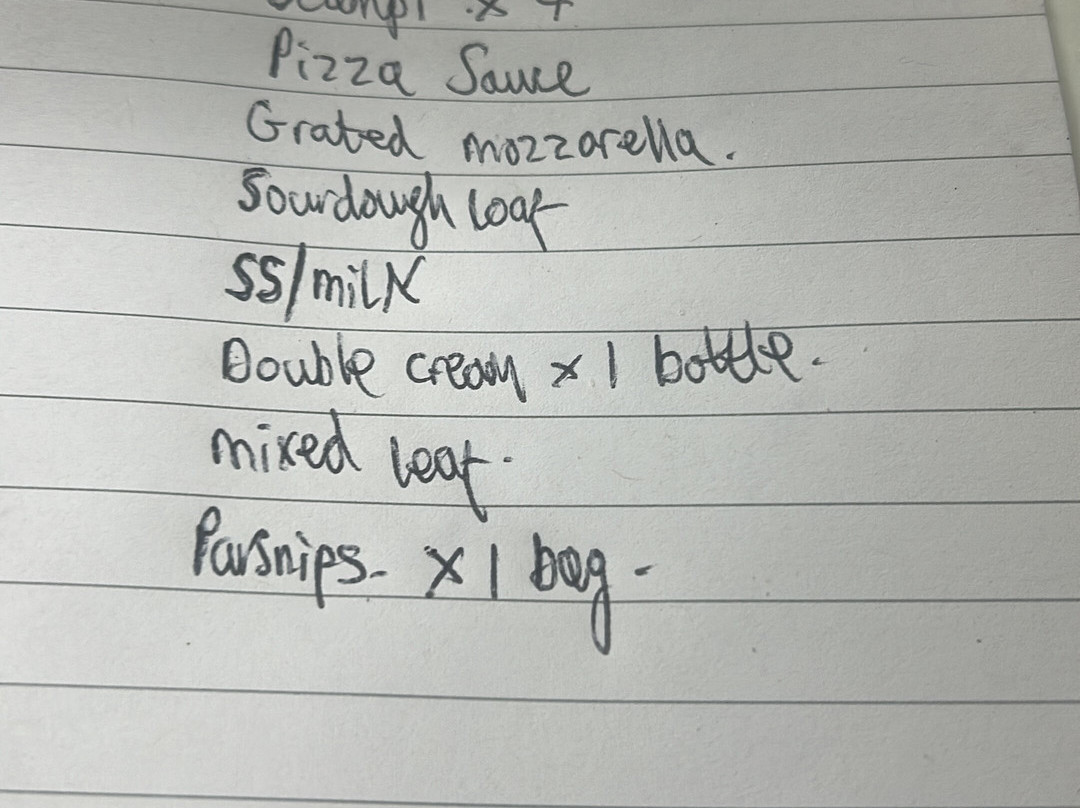 Scampi x 4
Pizza Sauce
Grated mozzarella.
Sourdough loaf
SS/milk
Double cream x 1 bottle.
mixed leaf.
Parsnips. x 1 bag.